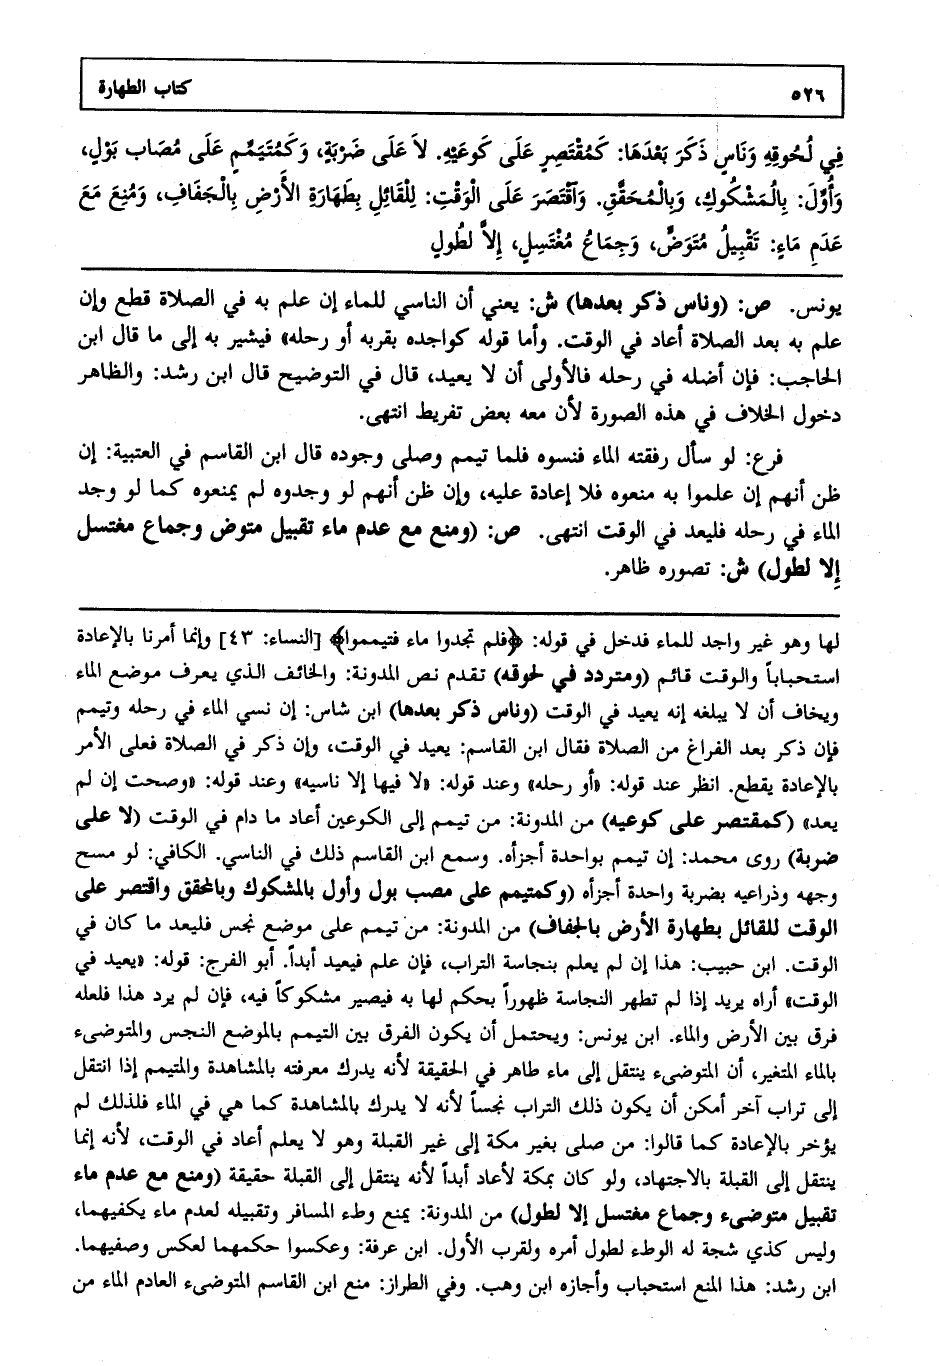 ٥٢٦ كتاب الطهارة
فِي لُحُوقِهِ وَنَاسٍ ذَكَرَ بَعْدَهَا: كَمُقْتَصِرٍ عَلَى كَوعَيْهِ. لاَ عَلَى ضَرْبَةٍ، وَكَمُتَيَمِّمٍ عَلَى مُصَابِ بَوْلٍ،
وَأُوِّلَ: بِالْمَشْكُوكِ، وَبِالْمُحَقَّقِ. وَٱقْتَصَرَ عَلَى الْوَقْتِ: لِلْقَائِلِ بِطَهَارَةِ الأَرْضِ بِالْجَفَافِ، وَمُنِعَ مَعَ
عَدَمِ مَاءٍ: تَقْبِيلُ مُتَوَضٍّ، وَجِمَاعُ مُغْتَسِلٍ، إِلاَّ لطُولٍ
يونس. ص: (وناس ذكر بعدها) ش: يعني أن الناسي للماء إن علم به في الصلاة قطع وإن
علم به بعد الصلاة أعاد في الوقت. وأما قوله كواجده بقربه أو رحله» فيشير به إلى ما قال ابن
الحاجب: فإن أضله في رحله فالأولى أن لا يعيد، قال في التوضيح قال ابن رشد: والظاهر
دخول الخلاف في هذه الصورة لأن معه بعض تفريط انتهى.
فرع: لو سأل رفقته الماء فنسوه فلما تيمم وصلى وجوده قال ابن القاسم في العتبية: إن
ظن أنهم إن علموا به منعوه فلا إعادة عليه، وإن ظن أنهم لو وجدوه لم يمنعوه كما لو وجد
الماء في رحله فليعد في الوقت انتهى. ص: (ومنع مع عدم ماء تقبيل متوض وجماع مغتسل
إلا لطول) ش: تصوره ظاهر.
لها وهو غير واجد للماء فدخل في قوله: ﴿فلم تجدوا ماء فتيمموا﴾ [النساء: ٤٣] وإنما أمرنا بالإعادة
استحباباً والوقت قائم (ومتردد في لحوقه) تقدم نص المدونة: والخائف الذي يعرف موضع الماء
ويخاف أن لا يبلغه إنه يعيد في الوقت (وناس ذكر بعدها) ابن شاس: إن نسي الماء في رحله وتيمم
فإن ذكر بعد الفراغ من الصلاة فقال ابن القاسم: يعيد في الوقت، وإن ذكر في الصلاة فعلى الأمر
بالإعادة يقطع. انظر عند قوله: «أو رحله» وعند قوله: «لا فيها إلا ناسيه» وعند قوله: «وصحت إن لم
يعد» (كمقتصر على كوعيه) من المدونة: من تيمم إلى الكوعين أعاد ما دام في الوقت (لا على
ضربة) روى محمد: إن تيمم بواحدة أجزأه. وسمع ابن القاسم ذلك في الناسي. الكافي: لو مسح
وجهه وذراعيه بضربة واحدة أجزأه (وكمتيمم على مصب بول وأول بالمشكوك وبالمحقق واقتصر على
الوقت للقائل بطهارة الأرض بالجفاف) من المدونة: من تيمم على موضع نجس فليعد ما كان في
الوقت. ابن حبيب: هذا إن لم يعلم بنجاسة التراب، فإن علم فيعيد أبداً. أبو الفرج: قوله: «يعيد في
الوقت» أراه يريد إذا لم تطهر النجاسة ظهوراً بحكم لها به فيصير مشكوكاً فيه، فإن لم يرد هذا فلعله
فرق بين الأرض والماء. ابن يونس: ويحتمل أن يكون الفرق بين التيمم بالموضع النجس والمتوضىء
بالماء المتغير، أن المتوضىء ينتقل إلى ماء طاهر في الحقيقة لأنه يدرك معرفته بالمشاهدة والمتيمم إذا انتقل
إلى تراب آخر أمكن أن يكون ذلك التراب نجساً لأنه لا يدرك بالمشاهدة كما هي في الماء فلذلك لم
يؤخر بالإعادة كما قالوا: من صلى بغير مكة إلى غير القبلة وهو لا يعلم أعاد في الوقت، لأنه إنما
ينتقل إلى القبلة بالاجتهاد، ولو كان بمكة لأعاد أبداً لأنه ينتقل إلى القبلة حقيقة (ومنع مع عدم ماء
تقبيل متوضىء وجماع مغتسل إلا لطول) من المدونة: يمنع وطء المسافر وتقبيله لعدم ماء يكفيهما،
وليس كذي شجة له الوطء لطول أمره ولقرب الأول. ابن عرفة: وعكسوا حكمهما لعكس وصفيهما.
ابن رشد: هذا المنع استحباب وأجازه ابن وهب. وفي الطراز: منع ابن القاسم المتوضىء العادم الماء من